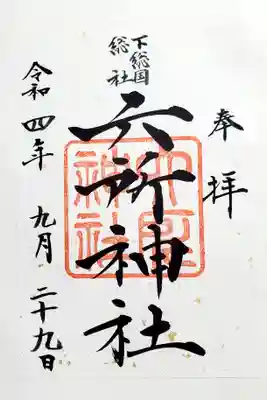 奉拝
下総国
総社
六所神社
六所
神社
令和四年 九月 二十九日